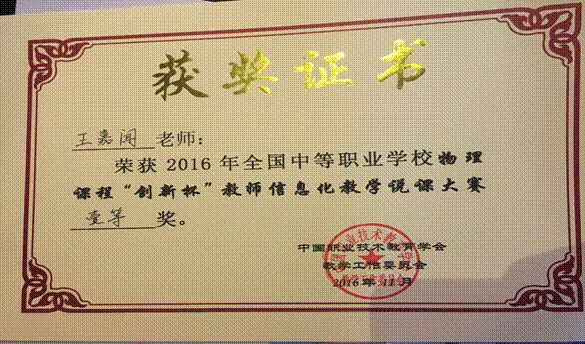 获奖证书
王嘉闻 老师：
荣获2016年全国中等职业学校物理
课程“创新杯”教师信息化教学说课大赛
壹等 奖。
中国职业技术教育学会
教学工作委员会
2016年11月